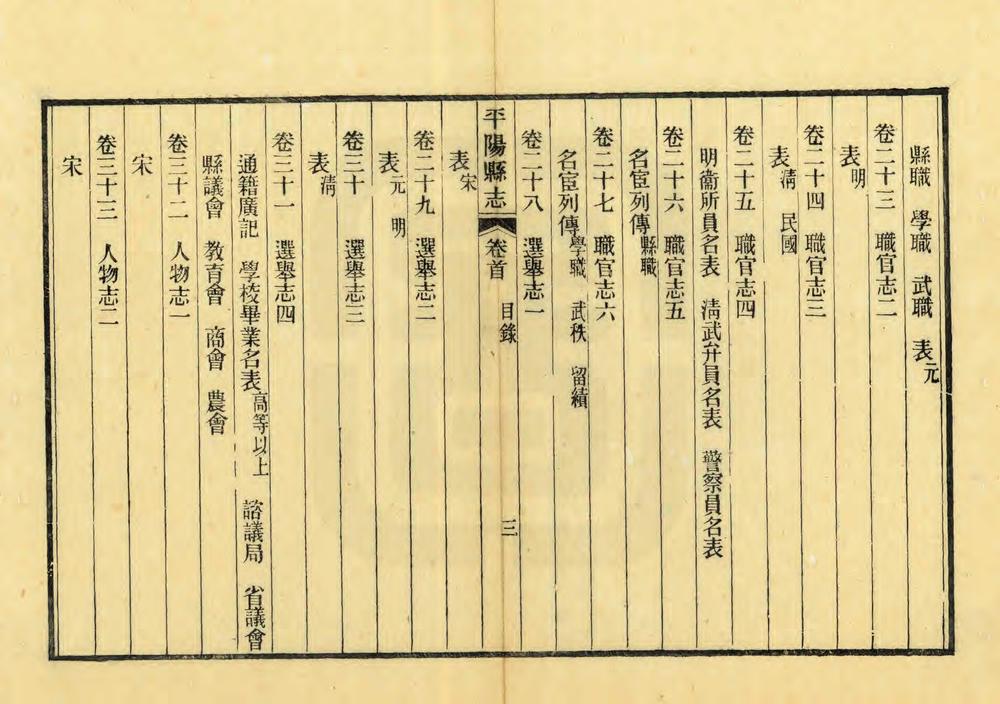 縣職 學職 武職 表元
卷二十三 職官志二
表明
卷二十四 職官志三
表淸 民國
卷二十五 職官志四
明衞所員名表 淸武弁員名表 警察員名表
卷二十六 職官志五
名宦列傳縣職
卷二十七 職官志六
名宦列傳學職 武秩 留績
卷二十八 選舉志一
平陽縣志 卷首 目錄 三
表宋
卷二十九 選舉志二
表元 明
卷三十 選舉志三
表淸
卷三十一 選舉志四
通籍廣記 學校畢業名表高等以上 諮議局 省議會
縣議會 教育會 商會 農會
卷三十二 人物志一
宋
卷三十三 人物志二
宋